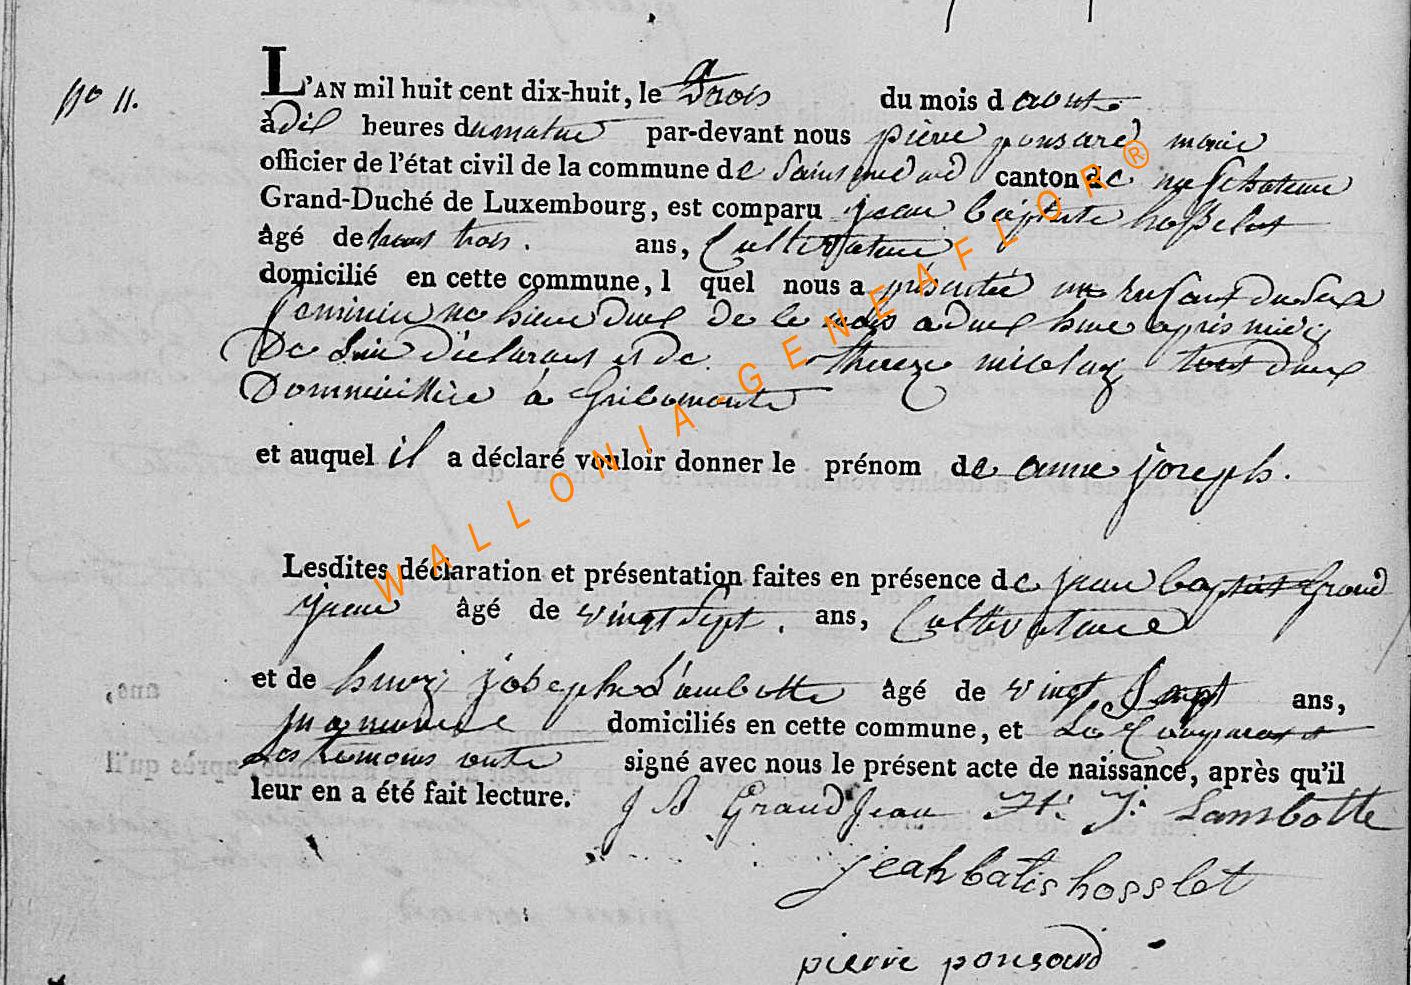 no 11.
L'AN mil huit cent dix-huit, le trois du mois d aout
à dix heures du matin par-devant nous pierre ponsard maire
officier de l'état civil de la commune de Saint medard canton de neufchateau
Grand-Duché de Luxembourg, est comparu jean baptiste hosselet
âgé de trente trois . ans, Cultivateur
domicilié en cette commune, l quel nous a présenté un Enfant du Sexe
feminin né hiere du de le mois a deux heure apres midi
De Lui déclarant et de thereze nicolay tout deux
Dommicilliée à Gribomonte
et auquel il a déclaré vouloir donner le prénom de anne joseph.
Lesdites déclaration et présentation faites en présence de jean baptiste Grand
jean âgé de vingt Sept . ans, Cultivateure
et de henri joseph Lambotte âgé de vingt Sept ans,
domiciliés en cette commune, et Le Comparant et
Les temoins onte signé avec nous le présent acte de naissance, après qu'il
leur en a été fait lecture.
J B Grandjean H. J. Lambotte
jeahbatis hosslet
pierre ponsard
WALLONIA-GENEAFLOR®